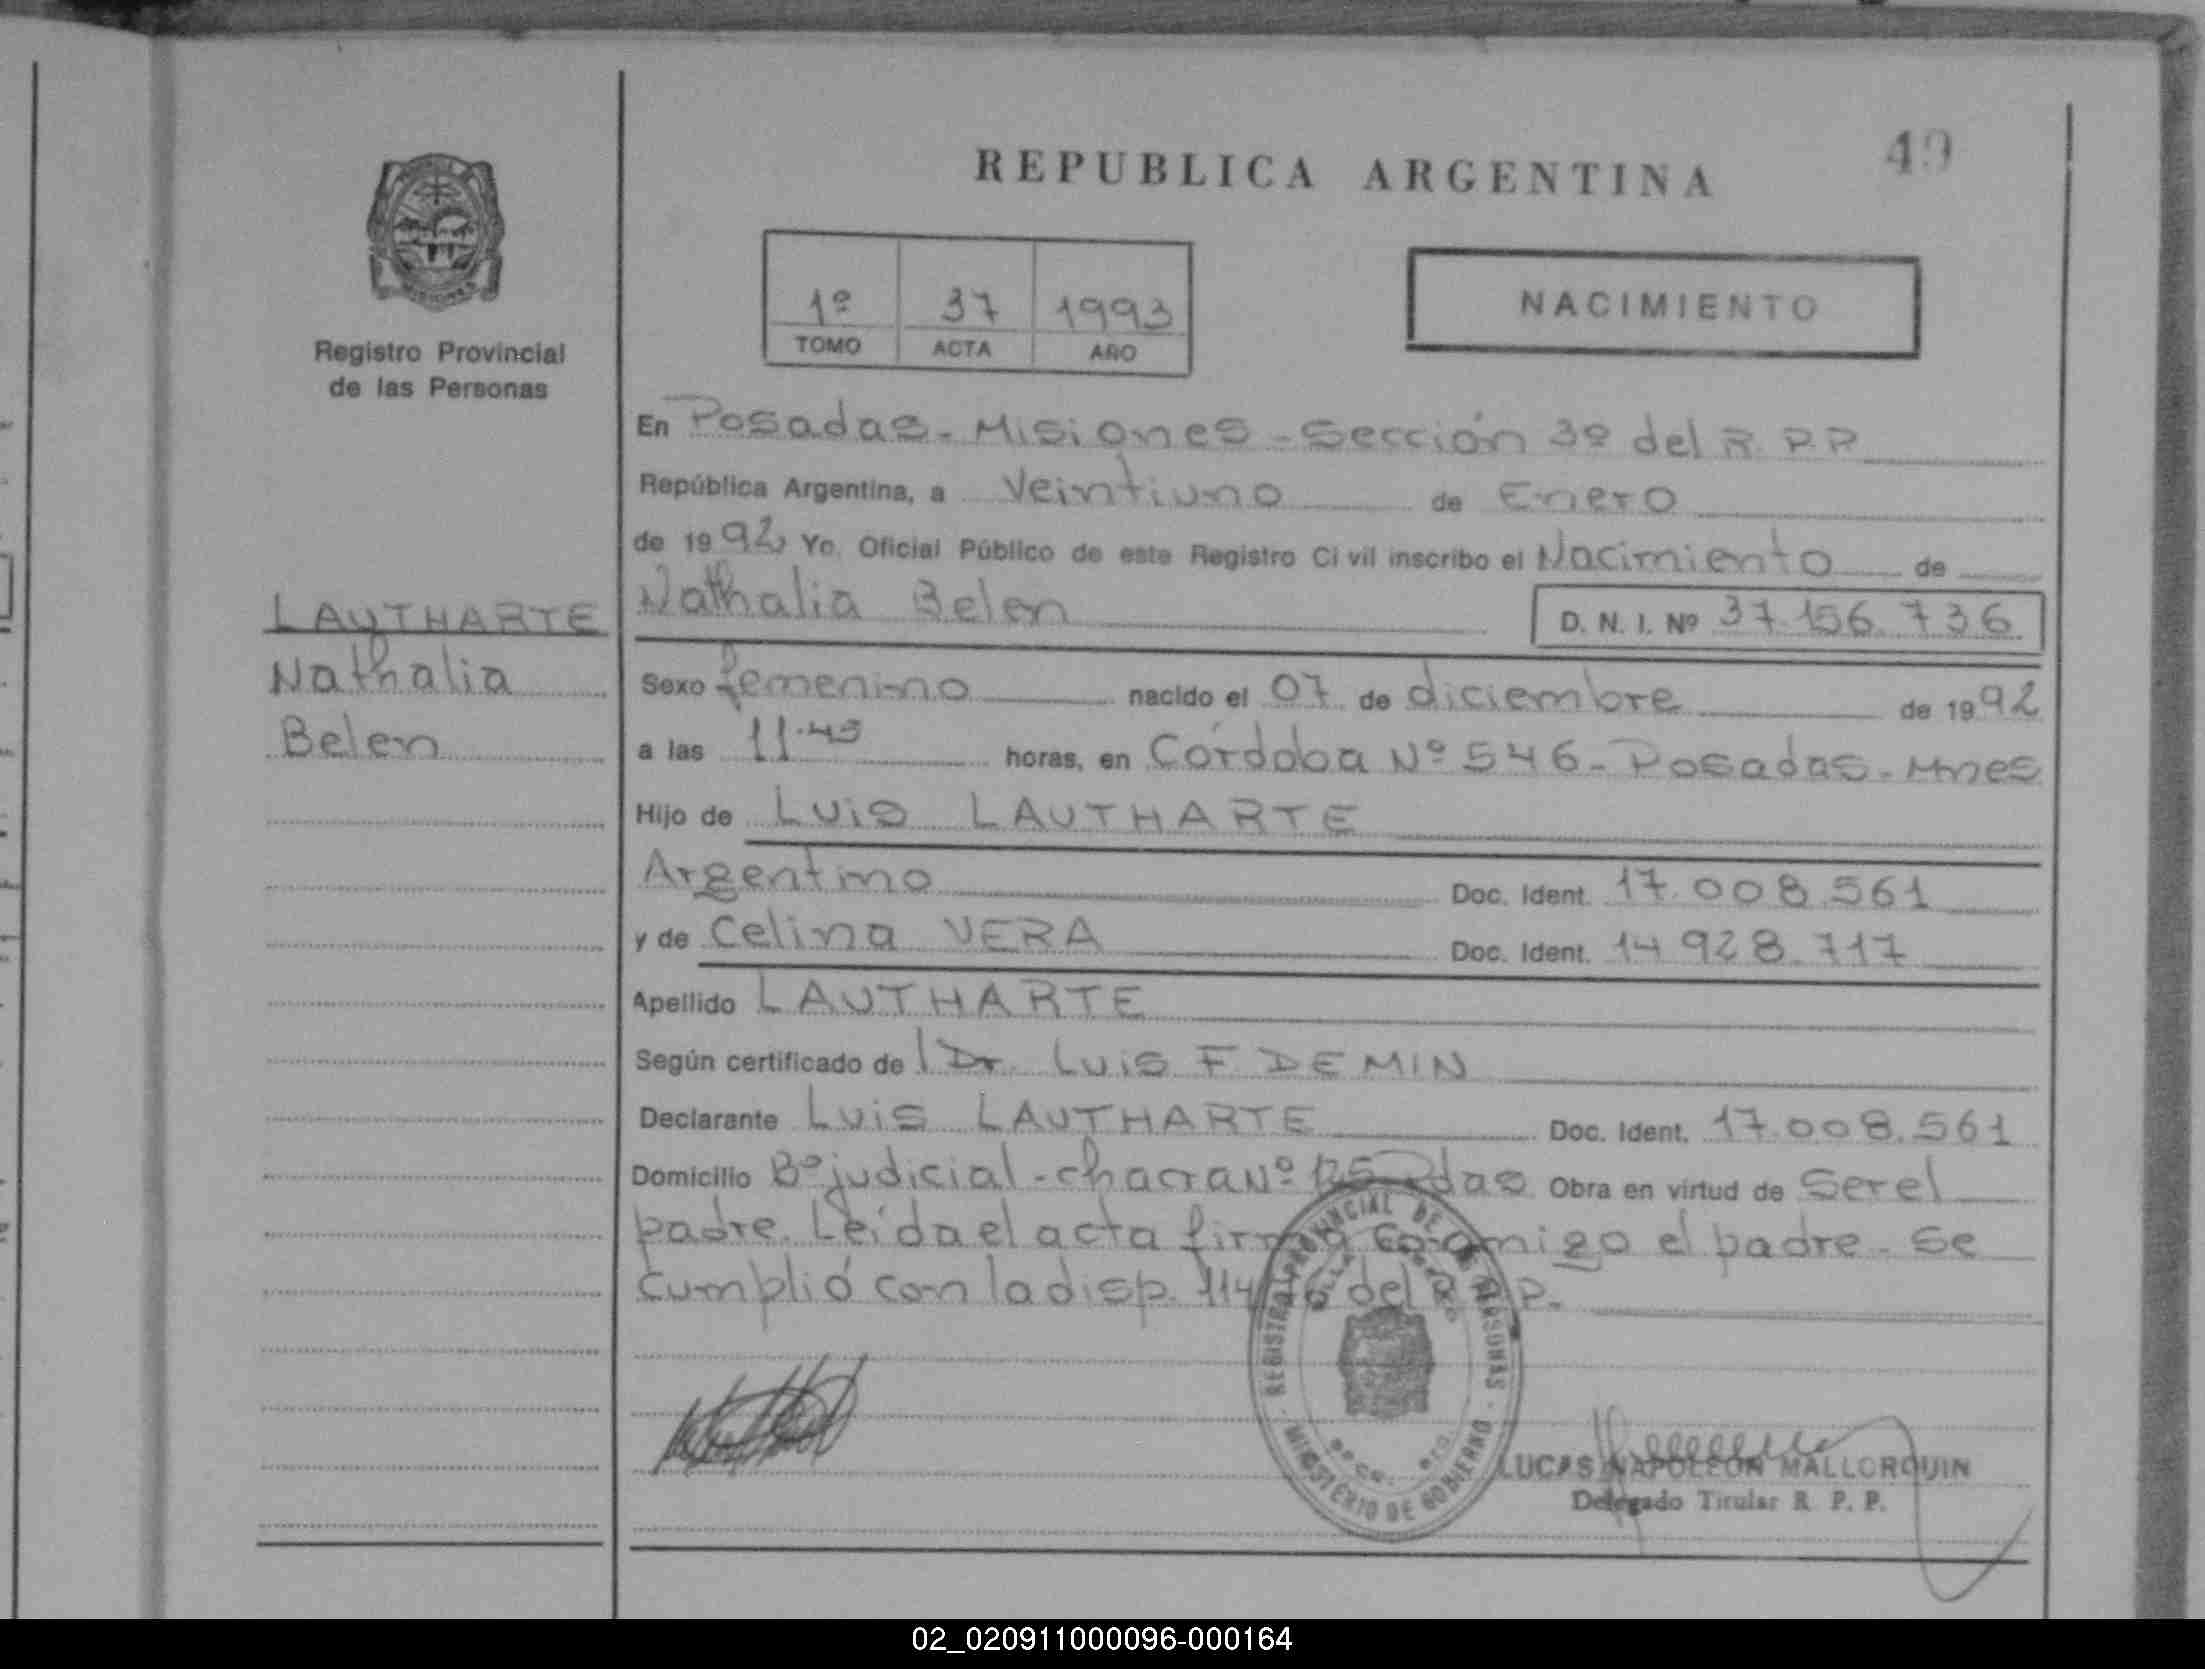 REPUBLICA ARGENTINA
49
1º 37 1993
TOMO ACTA AÑO
NACIMIENTO
MISIONES
Registro Provincial
de las Personas
LAUTHARTE
Nathalia
Belen
En Posadas - Misiones - Sección 3º del R. P.P
República Argentina, a Veintiuno de Enero
de 1992 Yo. Oficial Público de este Registro Ci vil inscribo el Nacimiento de
Nathalia Belen D. N. I. Nº 37.156.736
Sexo femenino nacido el 07 de diciembre de 1992
a las 11.45 horas, en Córdoba Nº 546 - Posadas - Mnes
Hijo de Luis LAUTHARTE
Argentino Doc. Ident. 17.008.561
y de Celina VERA Doc. Ident. 14.928.717
Apellido LAUTHARTE
Según certificado de l Dr. Luis F. DEMIN
Declarante Luis LAUTHARTE Doc. Ident. 17.008.561
Domicilio Bº judicial - chacra Nº 125 Pdas Obra en virtud de Ser el
padre. Leída el acta firma conmigo el padre - Se
cumplió con la disp. del R.P.P.
REGISTRO PROVINCIAL DE LAS PERSONAS
MINISTERIO DE GOBIERNO
LUCAS NAPOLEON MALLORQUIN
Delegado Titular R. P. P.
02_020911000096-000164